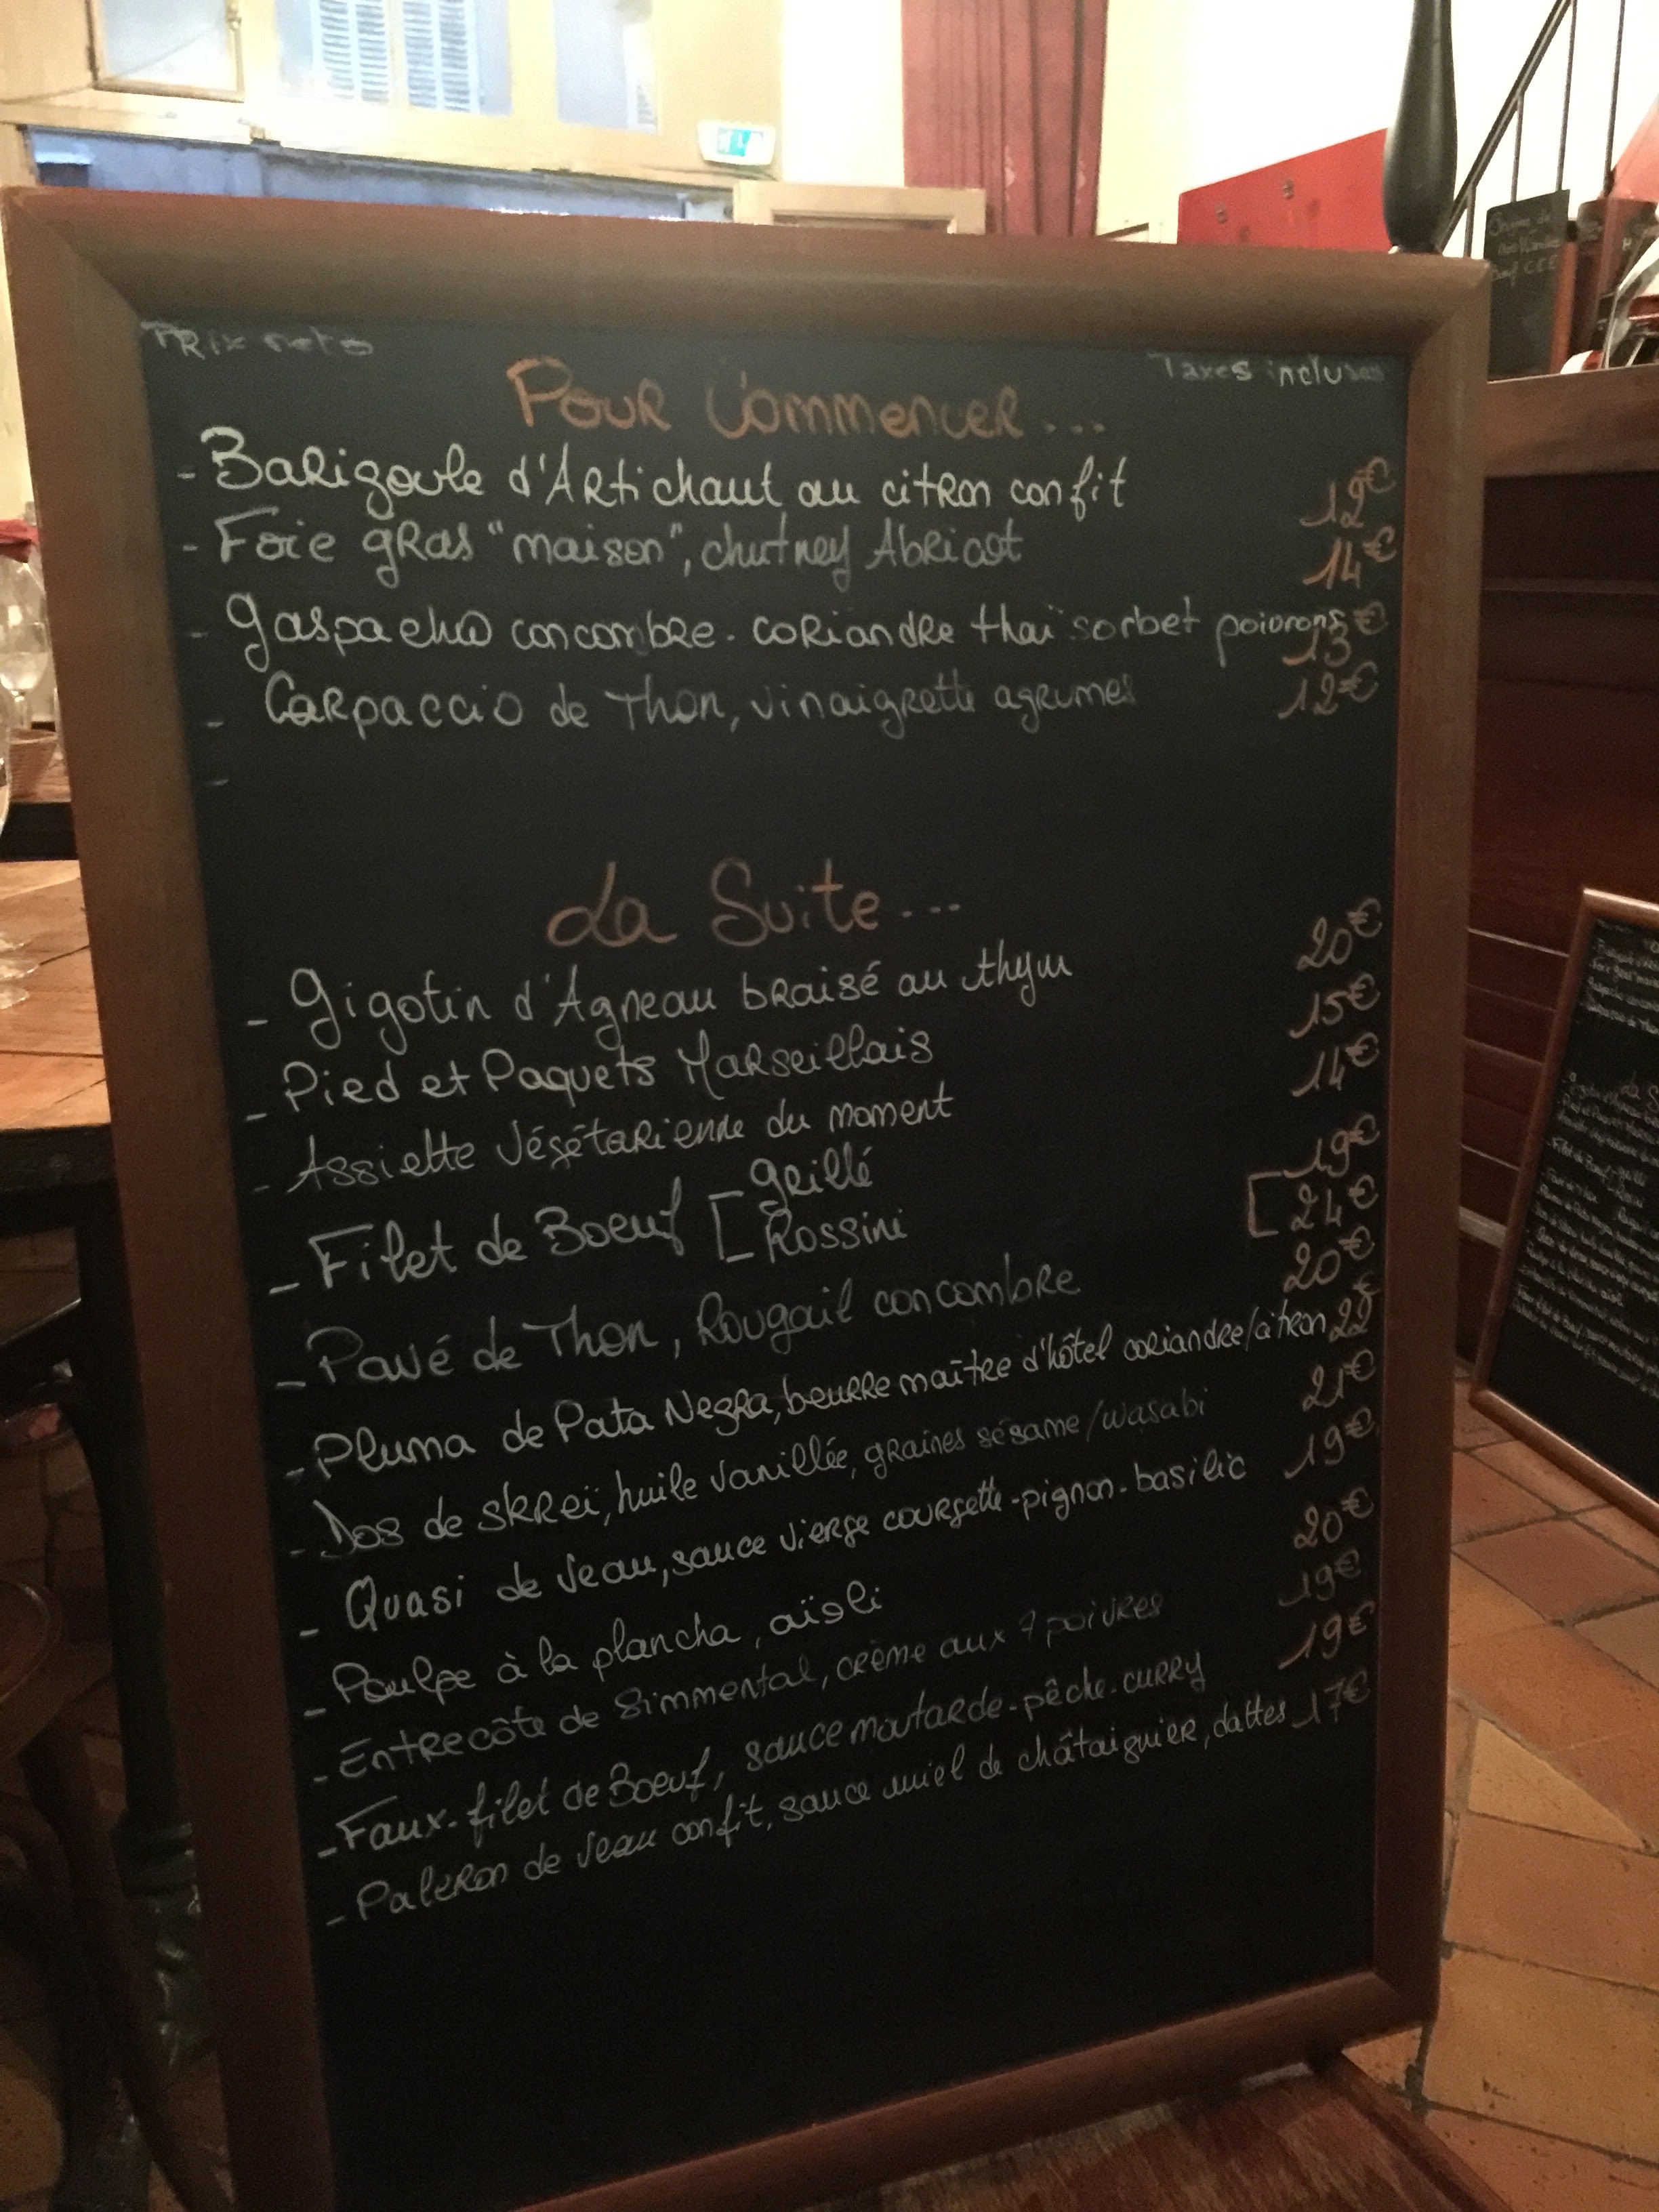 Prix nets
Taxes incluses
Pour Commencer...
- Barigoule d'Artichaut au citron confit 12€
- Foie gras "maison", chutney Abricot 14€
- Gaspacho concombre - coriandre thaï sorbet poivrons 13€
- Carpaccio de Thon, vinaigrette agrumes 12€
-
La Suite...
- Gigotin d'Agneau braisé au thym 20€
- Pied et Paquets Marseillais 15€
- Assiette Végétarienne du moment 14€
- Filet de Boeuf [ grillé 19€
Rossini [ 24€
- Pavé de Thon, Rougail concombre 20€
- Pluma de Pata Negra, beurre maître d'hôtel coriandre/citron 22€
- Dos de skreï, huile vanillée, graines sésame/wasabi 21€
- Quasi de Veau, sauce vierge courgette - pignon - basilic 19€
- Poulpe à la plancha, aïoli 20€
- Entrecôte de Simmental, crème aux 7 poivres 19€
- Faux-filet de Boeuf, sauce moutarde - pêche - curry 19€
- Paleron de Veau confit, sauce miel de châtaignier, dattes 17€
Origine de
nos Viandes
Boeuf C.E.E